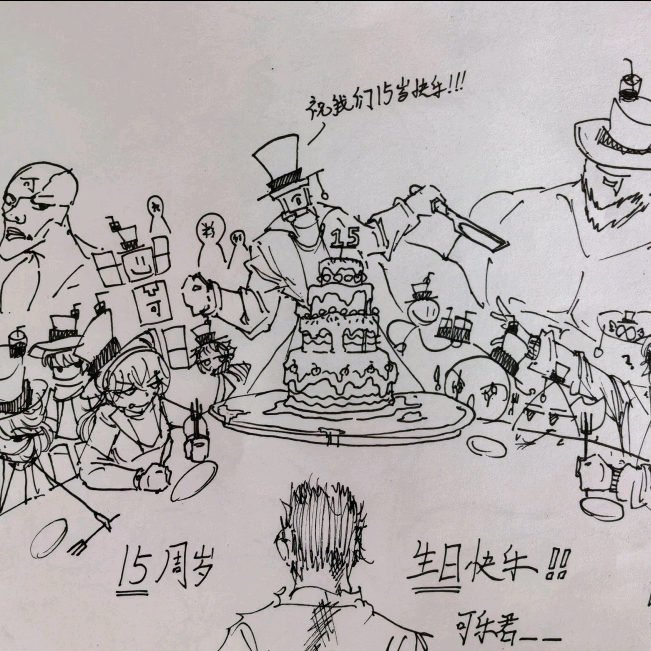 祝我们15岁快乐!!!
15
可
15周岁
生日快乐!!
可乐君__